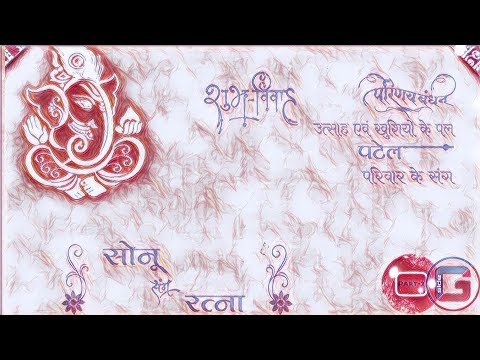 शुभ-विवाह
परिणय बंधन
उत्साह एवं खुशियों के पल
पटेल
परिवार के संग
सोनू
संग
रत्ना
PART-2